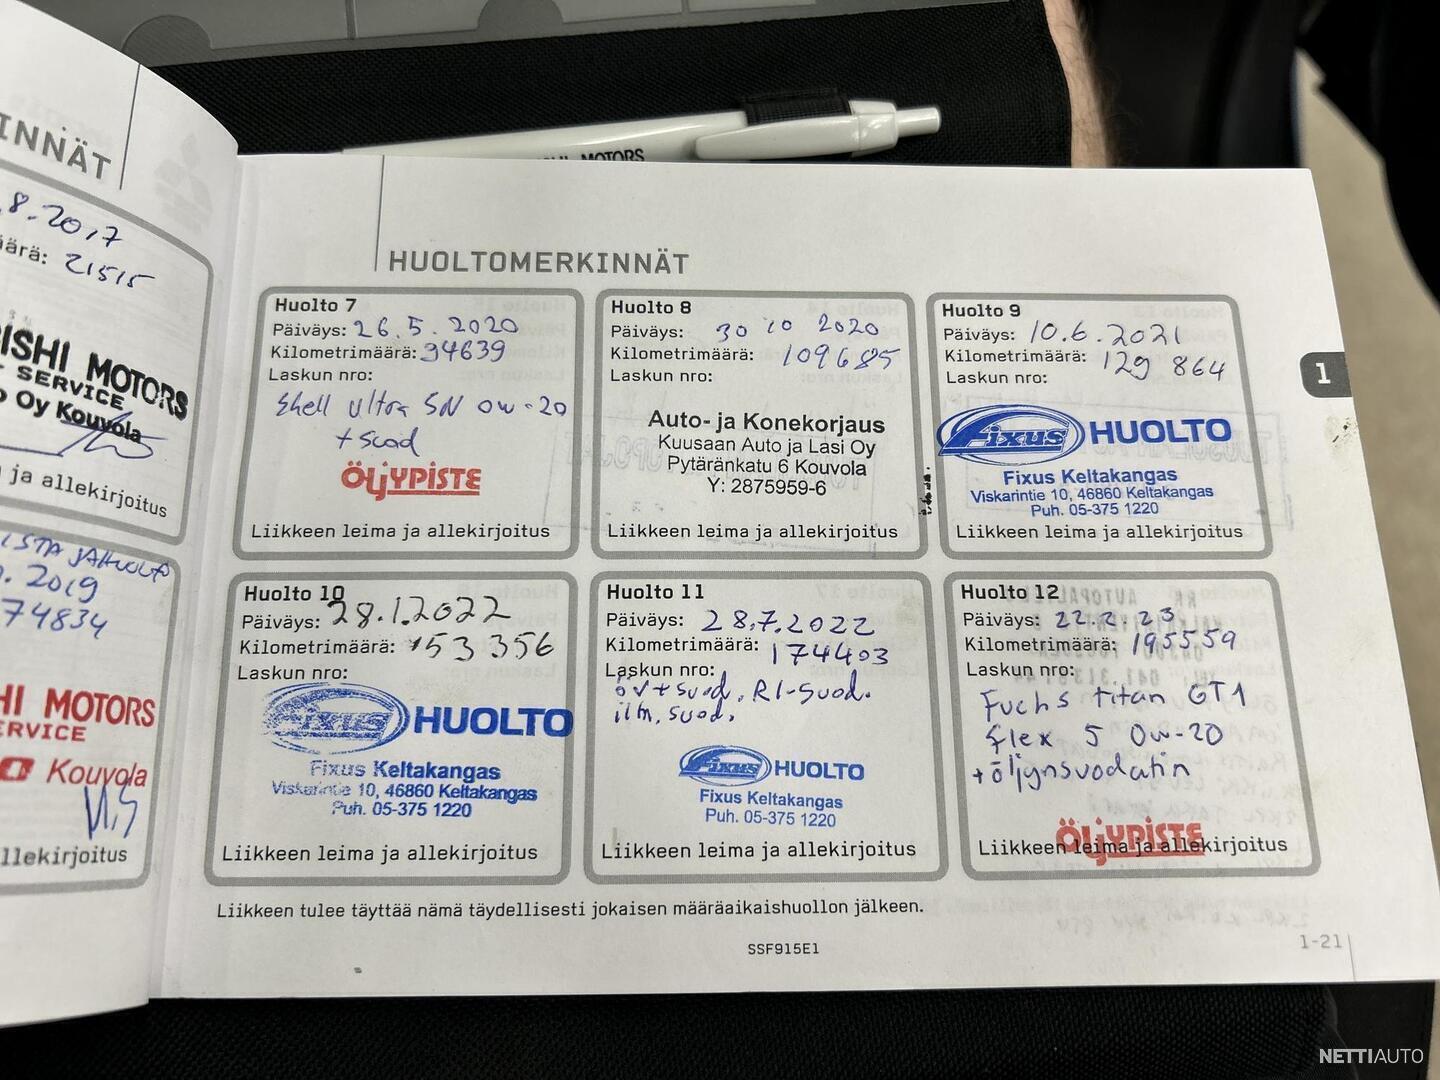 INNÄT
.8.2017
äärä: 21515
ISHI MOTORS
SERVICE
o Oy Kouvola
ja allekirjoitus
2019
74834
HI MOTORS
ERVICE
Kouvola
llekirjoitus
MOTORS
HUOLTOMERKINNÄT
Huolto 7
Päiväys: 26.5.2020
Kilometrimäärä: 94639
Laskun nro:
Shell ultra SN 0w-20
+ suod
ÖLJYPISTE
Liikkeen leima ja allekirjoitus
Huolto 8
Päiväys: 30 10 2020
Kilometrimäärä: 109685
Laskun nro:
Auto- ja Konekorjaus
Kuusaan Auto ja Lasi Oy
Pytäränkatu 6 Kouvola
Y: 2875959-6
Liikkeen leima ja allekirjoitus
Huolto 9
Päiväys: 10.6.2021
Kilometrimäärä: 129 864
Laskun nro:
Fixus HUOLTO
Fixus Keltakangas
Viskarintie 10, 46860 Keltakangas
Puh. 05-375 1220
Liikkeen leima ja allekirjoitus
1
Huolto 10
Päiväys: 28.1.2022
Kilometrimäärä: 153 356
Laskun nro:
Fixus HUOLTO
Fixus Keltakangas
Viskarintie 10, 46860 Keltakangas
Puh. 05-375 1220
Liikkeen leima ja allekirjoitus
Huolto 11
Päiväys: 28.7.2022
Kilometrimäärä: 174403
Laskun nro:
öv+suod. RI-suod.
ilm. suod.
Fixus HUOLTO
Fixus Keltakangas
Puh. 05-375 1220
Liikkeen leima ja allekirjoitus
Huolto 12
Päiväys: 22.2.23
Kilometrimäärä: 195559
Laskun nro:
Fuchs titan GT1
flex 5 0w-20
+ öljynsuodatin
ÖLJYPISTE
Liikkeen leima ja allekirjoitus
Liikkeen tulee täyttää nämä täydellisesti jokaisen määräaikaishuollon jälkeen.
SSF915E1
1-21
NETTIAUTO